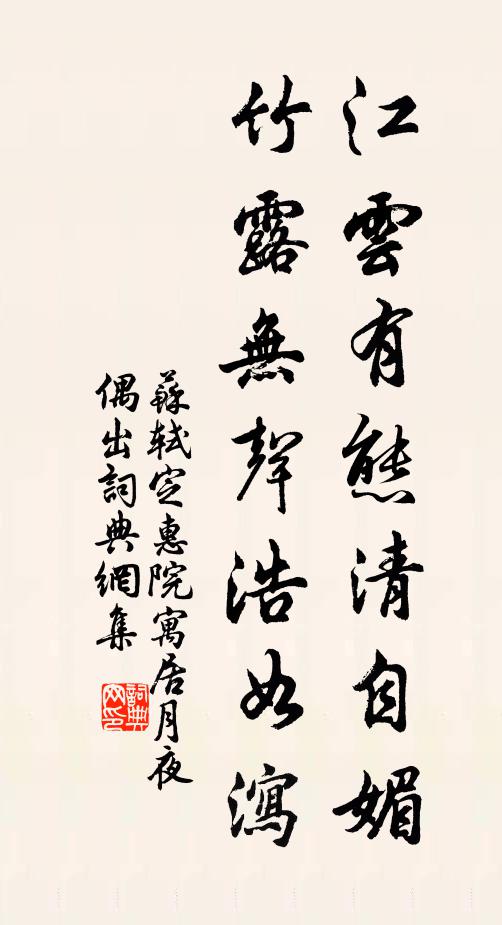 江雲有態清自媚
竹露無聲浩如瀉
蘇軾定惠院寓居月夜
偶出詞典網集
詞典
网印